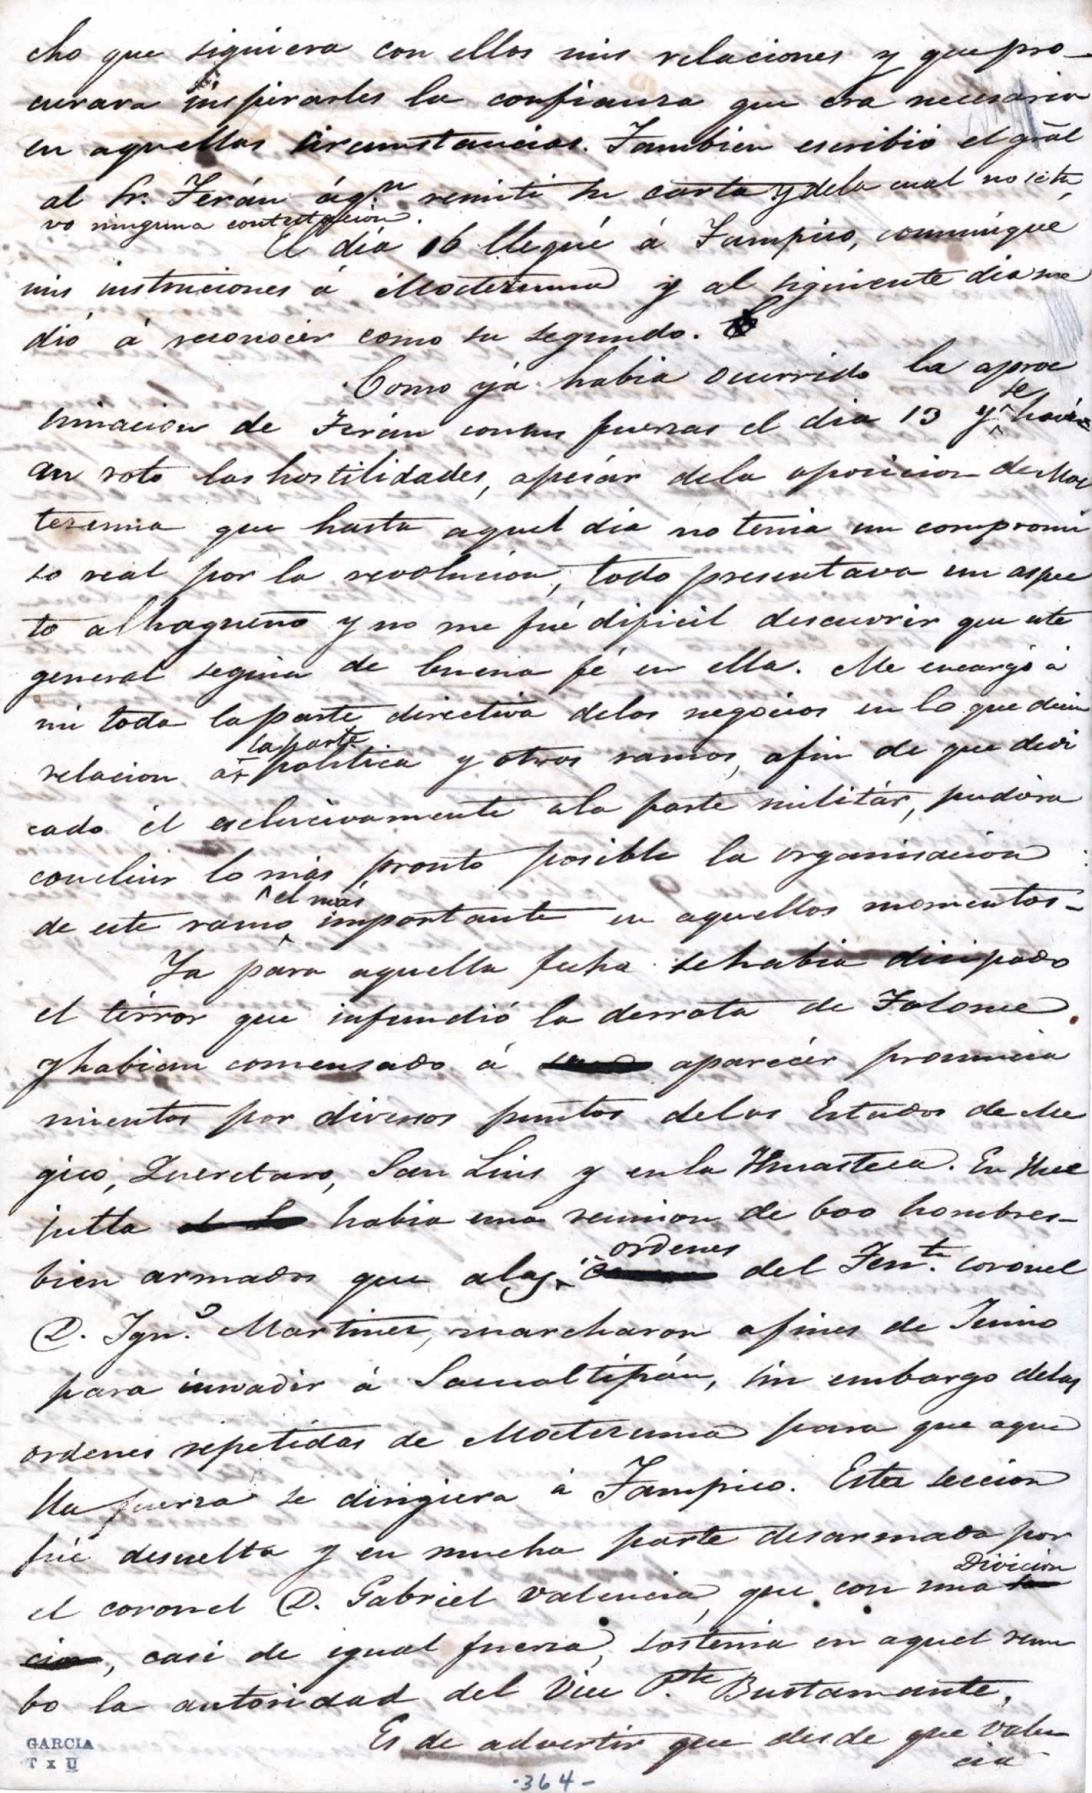 cho que siguiera con ellos mis relaciones y que pro-
curara inspirarles la confianza que era necesaria
en aquellas circunstancias. Tambien escribió el gral
al Sr. Terán á qn remiti su carta y dela cual no se tu
vo ninguna contestacion.
El dia 16 llegué á Tampico, comuniqué
mis instruciones á Moctezuma y al siguiente dia me
dió á reconocer como su segundo.
Como yá habia ocurrido la aproc
simacion de Terán con sus fuerzas el dia 13 y se havi
an roto las hostilidades, apesár dela oposicion de Moc
tezuma que hasta aquel dia no tenia un compromi
so real por la revolucion, todo presentava un aspec
to alhagueño y no me fué dificil descuvrir que este
general seguia de buena fé en ella. Me encargó á
mi toda la parte directiva delos negocios en lo que decia
relacion á la parte politica y otros ramos, afin de que dedi
cado él esclucivamente ala parte militár, pudiera
concluir lo mas pronto posible la organisacion
de este ramo el más importante en aquellos momentos-
Ya para aquella fecha se habia dicipado
el térror que infundió la derrota de Tolome
y habian comensado á aparecér pronuncia
mientos por diversos puntos delos Estados de Me
gico, Queretaro, San Luis y en la Huasteca. En Hue
jutla habia una reunion de 600 hombres-
bien armados que alas ordenes del Tente. coronel
D. Igno. Martinez, marcharon afines de Junio
para invadir á Sacualtipán, sin embargo delas
ordenes repetidas de Moctezuma para que aque
lla fuerza se dirigiera á Tampico. Esta seccion
fué desuelta y en mucha parte desarmada por
el coronel D. Gabriel Valencia, que con una Divicion
, casi de igual fuerza, sostenia en aquel rum
bo la autoridad del Vice Pte. Bustamante,
Es de advertir que desde que Valen
cia
GARCIA
T x U
-364-